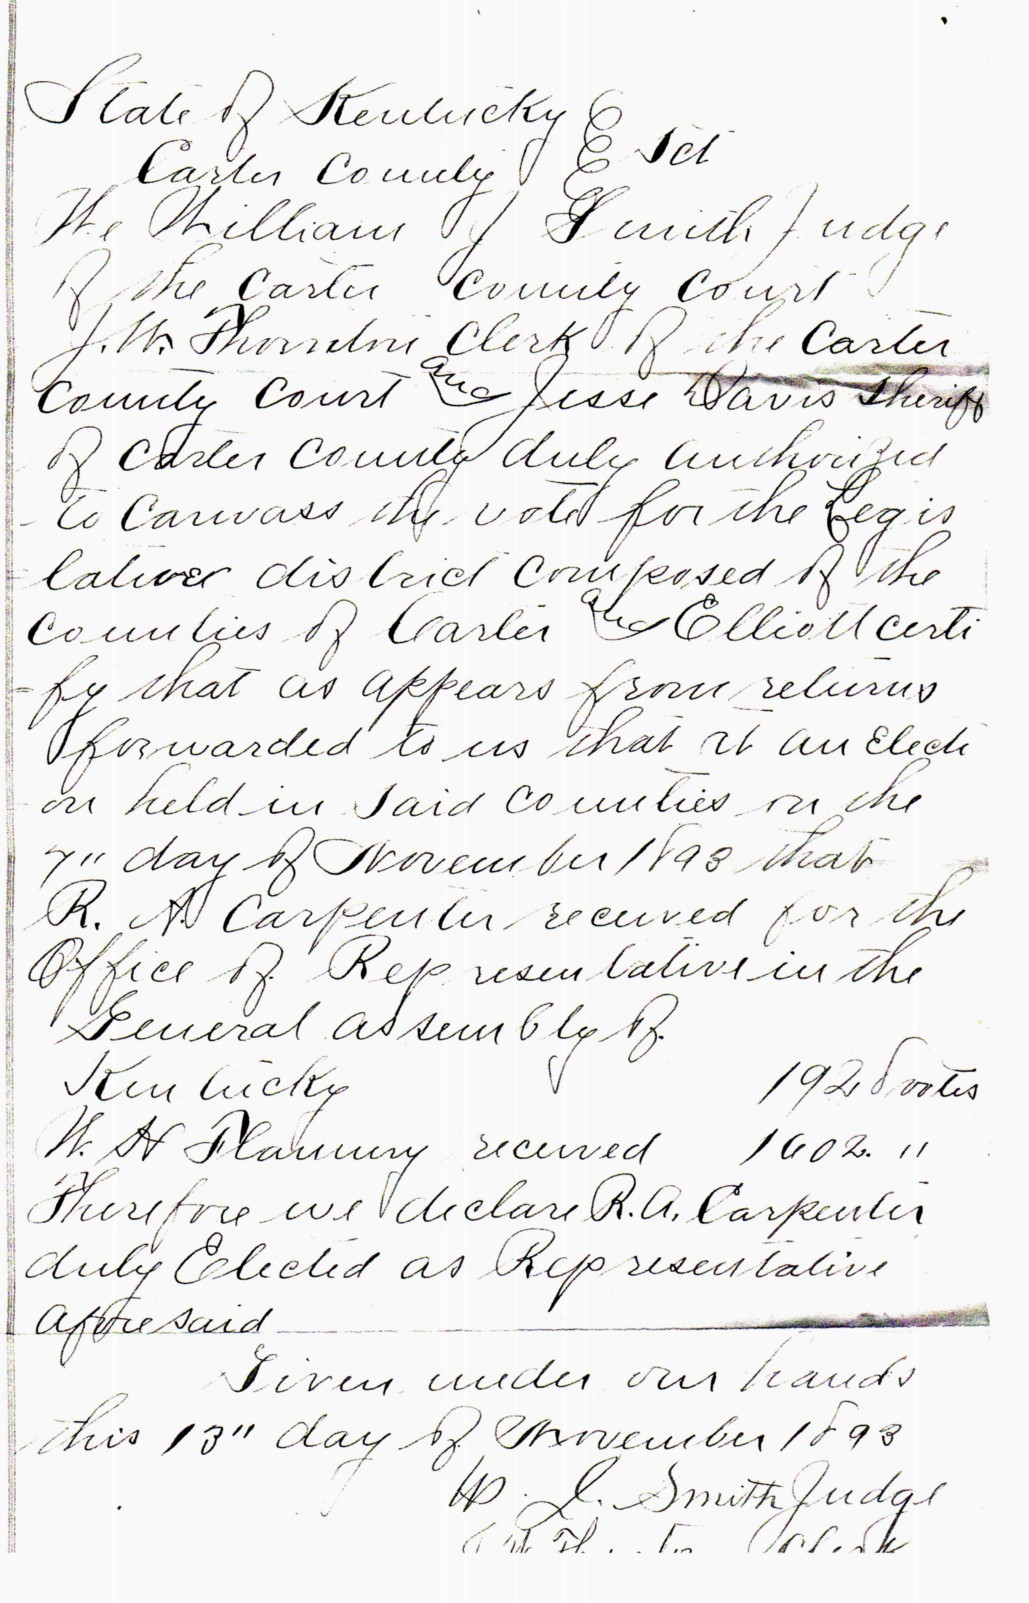 State of Kentucky
Carter County } Sct
We William J Smith Judge
of the Carter County Court
J. W. Thornton Clerk of the Carter
County Court and Jesse Davis Sheriff
of Carter County duly authorized
to Canvass the vote for the Legis
lative district composed of the
Counties of Carter and Elliott certi
fy that as appears from returns
forwarded to us that at an Electi
on held in said Counties on the
7" day of November 1893 that
R. A Carpenter received for the
Office of Representative in the
General assembly of
Kentucky 1928 votes
W. H Flannery received 1602. "
Therefore we declare R. A. Carpenter
duly Elected as Representative
aforesaid
Given under our hands
this 13" day of November 1893
W. J. Smith Judge
Clerk